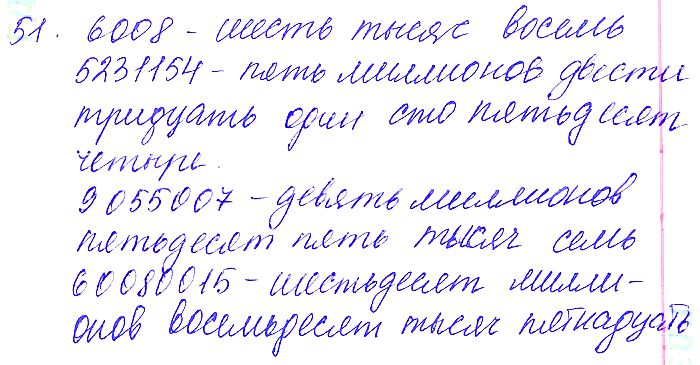 51. 6008 - шесть тысяс восемь
5231154 - пять миллионов двести
тридцать один сто пятьдесят
четыре.
9055007 - девять миллионов
пятьдесят пять тысяч семь
60080015 - шестьдесят милли-
онов восемьдесят тысяч пятнадцать